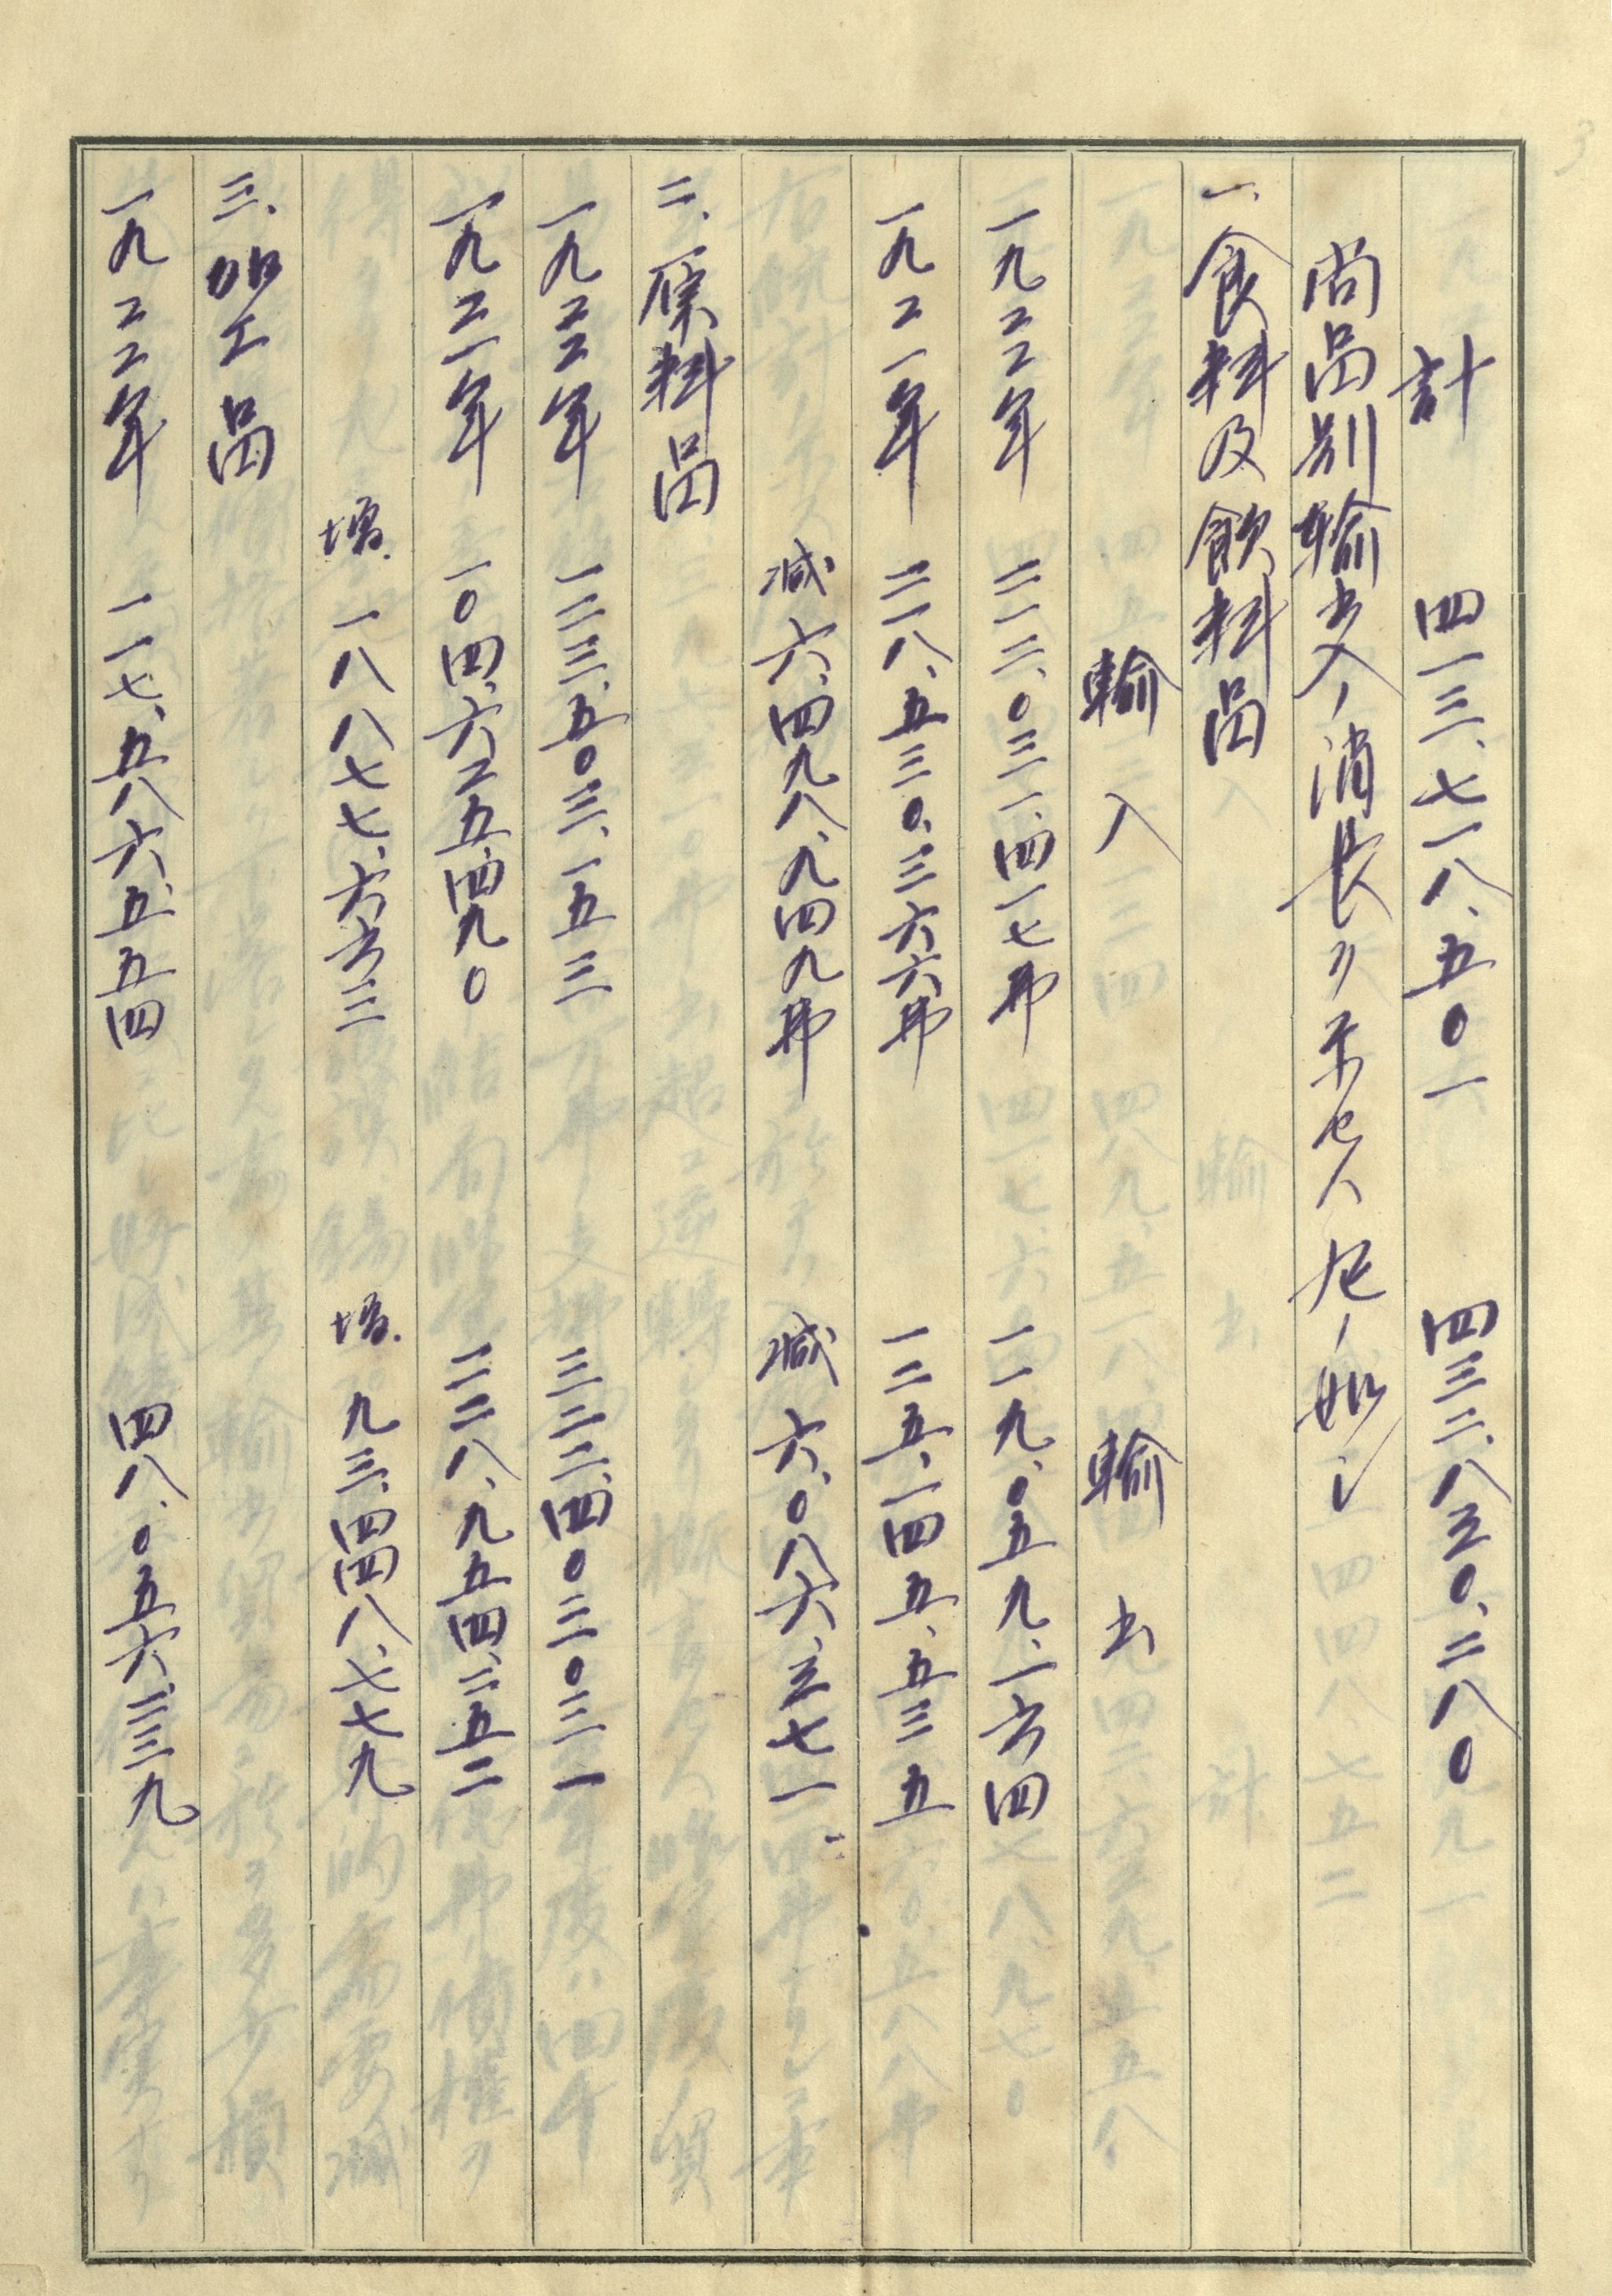 計 四一三、七一八、五〇一 四三二、八三〇、二八〇
商品別輸出入ノ消長ヲ示セハ左ノ如シ
一、食料及飲料品
輸入 輸出
一九二二年 二一二、〇三一、四一七弗 一一九、〇五九、一六四
一九二一年 二一八、五三〇、三六六弗 一二五、一四五、五三五
減 六、四九八、九四九弗 減 六、〇八六、三七一
二、原料品
一九二二年 一二三、五〇三、一五三 三二二、四〇三〇三一
一九二一年 一〇四、六二五、四九〇 二二八、九五四、二五二
増 一八八七七、六六三 増 九三、四四八、七七九
三、加工品
一九二二年 一一七、五八六、五五四 四八、〇五六、三三九